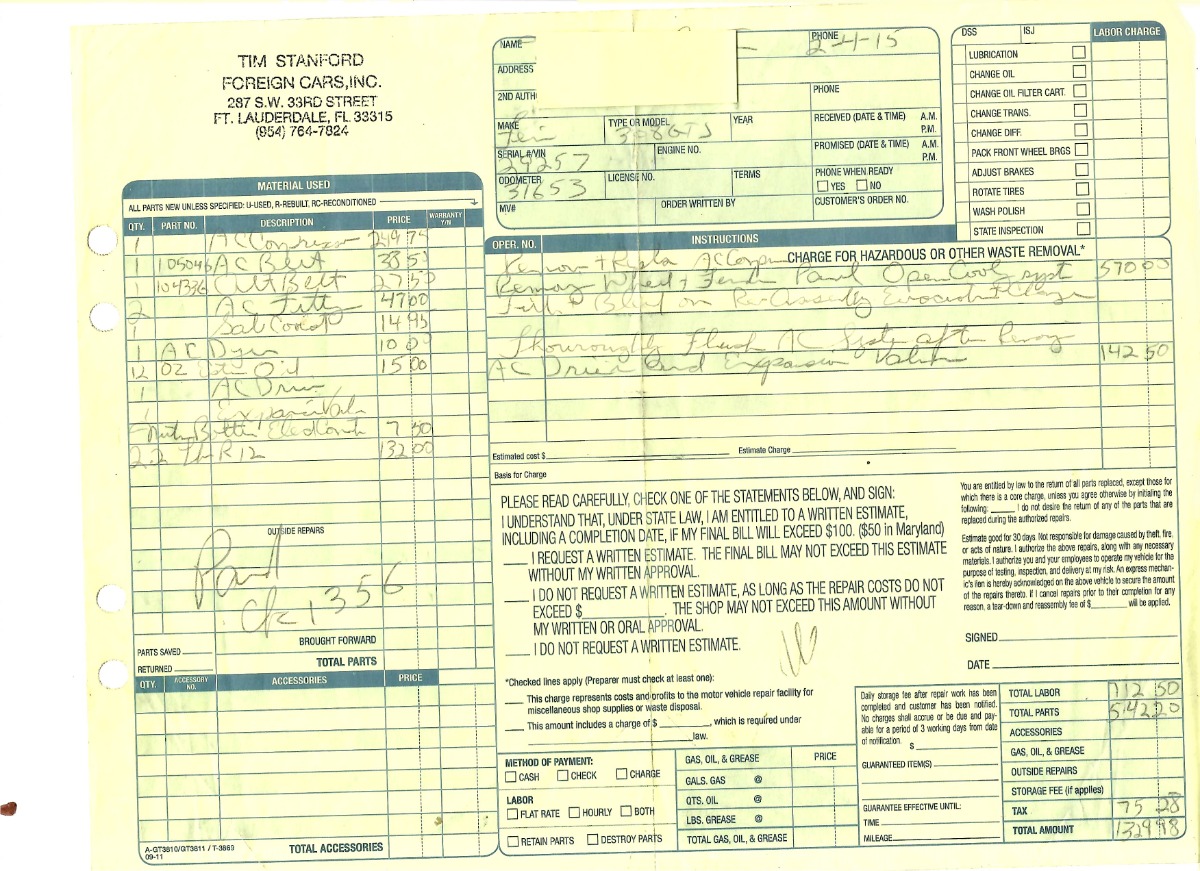 TIM STANFORD
FOREIGN CARS, INC.
287 S.W. 33RD STREET
FT. LAUDERDALE, FL 33315
(954) 764-7824
NAME
PHONE
2-4-15
ADDRESS
2ND AUTH
PHONE
MAKE
TYPE OR MODEL 308GTS
YEAR
RECEIVED (DATE & TIME) A.M. P.M.
SERIAL #/VIN 29257
ENGINE NO.
PROMISED (DATE & TIME) A.M. P.M.
ODOMETER 31653
LICENSE NO.
TERMS
PHONE WHEN READY
YES NO
MV#
ORDER WRITTEN BY
CUSTOMER'S ORDER NO.
DSS ISJ LABOR CHARGE
LUBRICATION
CHANGE OIL
CHANGE OIL FILTER CART.
CHANGE TRANS.
CHANGE DIFF.
PACK FRONT WHEEL BRGS
ADJUST BRAKES
ROTATE TIRES
WASH POLISH
STATE INSPECTION
MATERIAL USED
ALL PARTS NEW UNLESS SPECIFIED: U-USED, R-REBUILT, RC-RECONDITIONED
QTY. PART NO. DESCRIPTION PRICE WARRANTY Y/N
1 AC 249 75
1 105046 AC Belt 38 50
1 104336 Alt Belt 27 50
2 AC 47 00
1 14 95
1 AC 10 00
12 OZ Oil 15 00
1 AC
1
7 50
2.2 R12 132 00
OUTSIDE REPAIRS
Paid
ck 1356
PARTS SAVED
BROUGHT FORWARD
RETURNED
TOTAL PARTS
QTY. ACCESSORY NO. ACCESSORIES PRICE
A-GT3810/GT3811 / T-3869
09-11
TOTAL ACCESSORIES
OPER. NO. INSTRUCTIONS
CHARGE FOR HAZARDOUS OR OTHER WASTE REMOVAL*
Remov + AC
Wheel + Panel Open Cool syst 570 00
on
Flush AC System after
AC and Expansion 142 50
Estimated cost $ Estimate Charge
Basis for Charge
PLEASE READ CAREFULLY, CHECK ONE OF THE STATEMENTS BELOW, AND SIGN:
I UNDERSTAND THAT, UNDER STATE LAW, I AM ENTITLED TO A WRITTEN ESTIMATE,
INCLUDING A COMPLETION DATE, IF MY FINAL BILL WILL EXCEED $100. ($50 in Maryland)
I REQUEST A WRITTEN ESTIMATE. THE FINAL BILL MAY NOT EXCEED THIS ESTIMATE
WITHOUT MY WRITTEN APPROVAL.
I DO NOT REQUEST A WRITTEN ESTIMATE, AS LONG AS THE REPAIR COSTS DO NOT
EXCEED $ . THE SHOP MAY NOT EXCEED THIS AMOUNT WITHOUT
MY WRITTEN OR ORAL APPROVAL.
I DO NOT REQUEST A WRITTEN ESTIMATE.
*Checked lines apply (Preparer must check at least one):
This charge represents costs and profits to the motor vehicle repair facility for
miscellaneous shop supplies or waste disposal.
This amount includes a charge of $ , which is required under
law.
You are entitled by law to the return of all parts replaced, except those for
which there is a core charge, unless you agree otherwise by initialing the
following: I do not desire the return of any of the parts that are
replaced during the authorized repairs.
Estimate good for 30 days. Not responsible for damage caused by theft, fire,
or acts of nature. I authorize the above repairs, along with any necessary
materials. I authorize you and your employees to operate my vehicle for the
purpose of testing, inspection, and delivery at my risk. An express mechan-
ic's lien is hereby acknowledged on the above vehicle to secure the amount
of the repairs thereto. If I cancel repairs prior to their completion for any
reason, a tear-down and reassembly fee of $ will be applied.
SIGNED
DATE
METHOD OF PAYMENT:
CASH CHECK CHARGE
LABOR
FLAT RATE HOURLY BOTH
RETAIN PARTS DESTROY PARTS
GAS, OIL, & GREASE PRICE
GALS. GAS @
QTS. OIL @
LBS. GREASE @
TOTAL GAS, OIL, & GREASE
Daily storage fee after repair work has been
completed and customer has been notified.
No charges shall accrue or be due and pay-
able for a period of 3 working days from date
of notification.
$
GUARANTEED ITEM(S)
GUARANTEE EFFECTIVE UNTIL:
TIME
MILEAGE
TOTAL LABOR 712 50
TOTAL PARTS 542 20
ACCESSORIES
GAS, OIL, & GREASE
OUTSIDE REPAIRS
STORAGE FEE (if applies)
TAX 75 28
TOTAL AMOUNT 1329 98